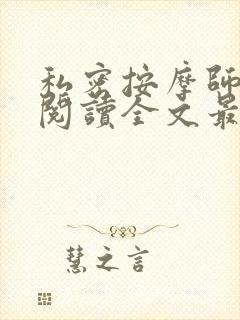 私密按摩師
閱讀全文最
慧之言